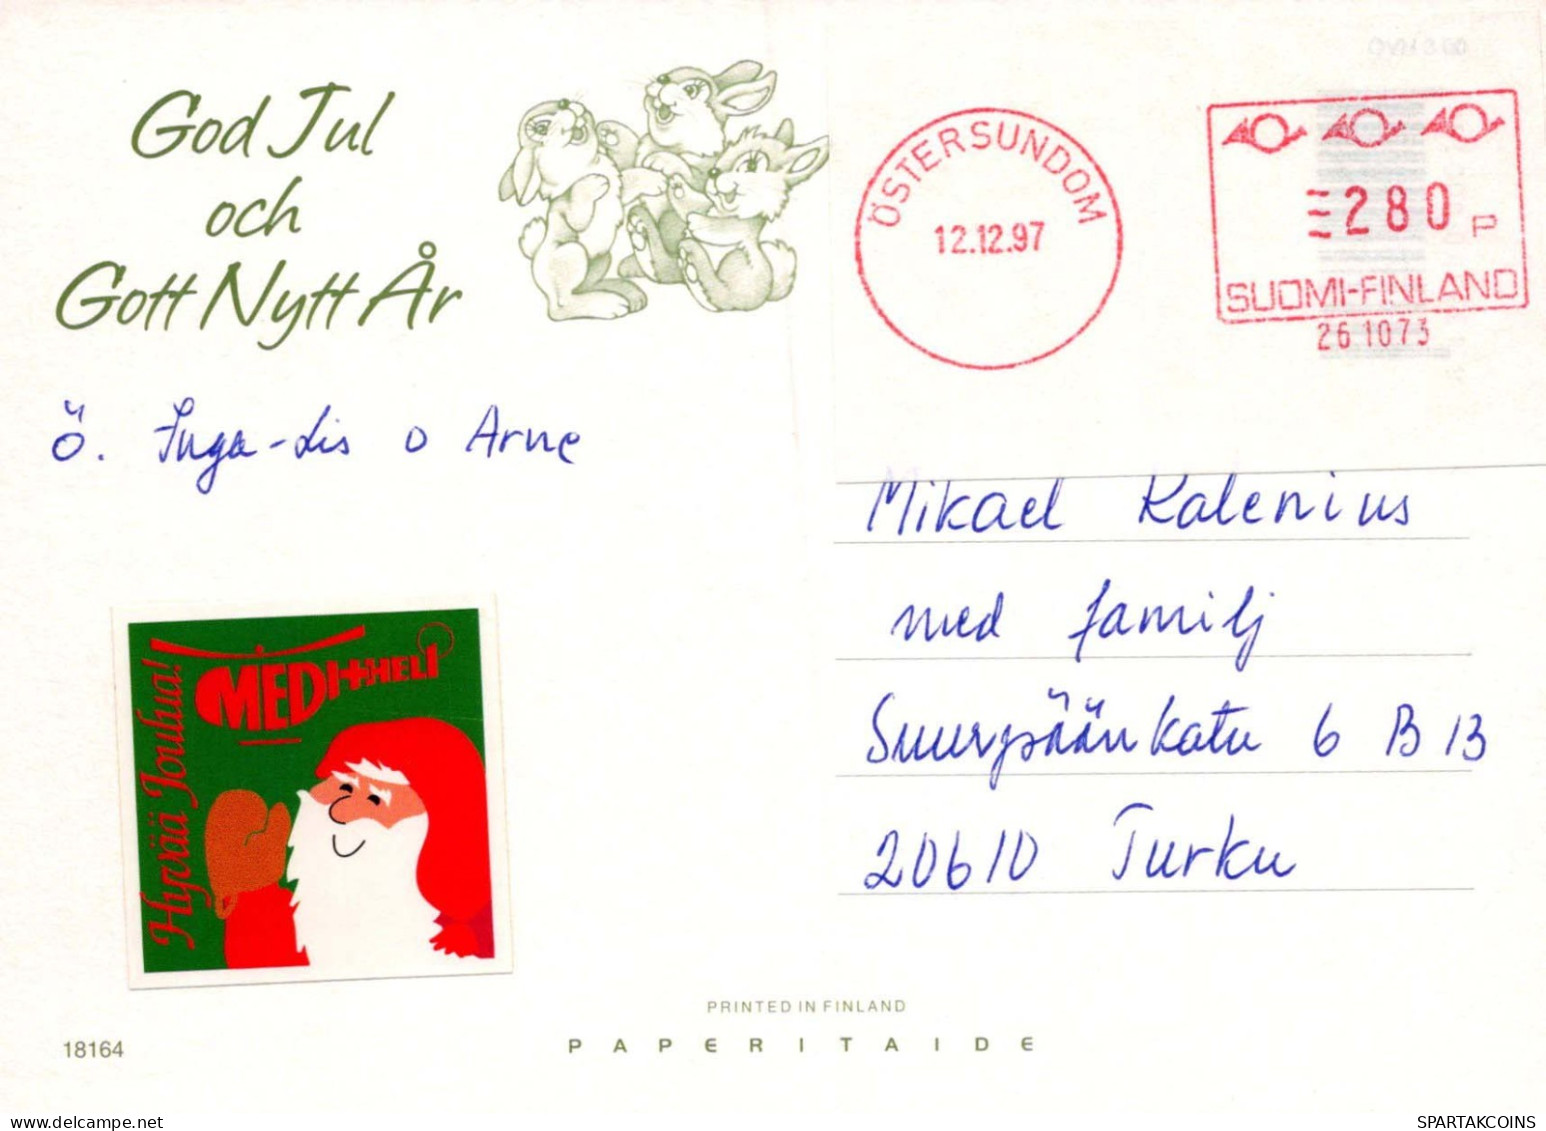 God Jul
och
Gott Nytt År
ÖSTERSUNDOM
12.12.97
280 P
SUOMI-FINLAND
261073
Ö. Inga-Lis o Arne
Mikael Kalenius
med familj
Suurpäänkatu 6 B 13
20610 Turku
Hyvää Joulua!
MEDI+HELI
PRINTED IN FINLAND
18164
PAPERITAIDE
SPARTAKCOINS